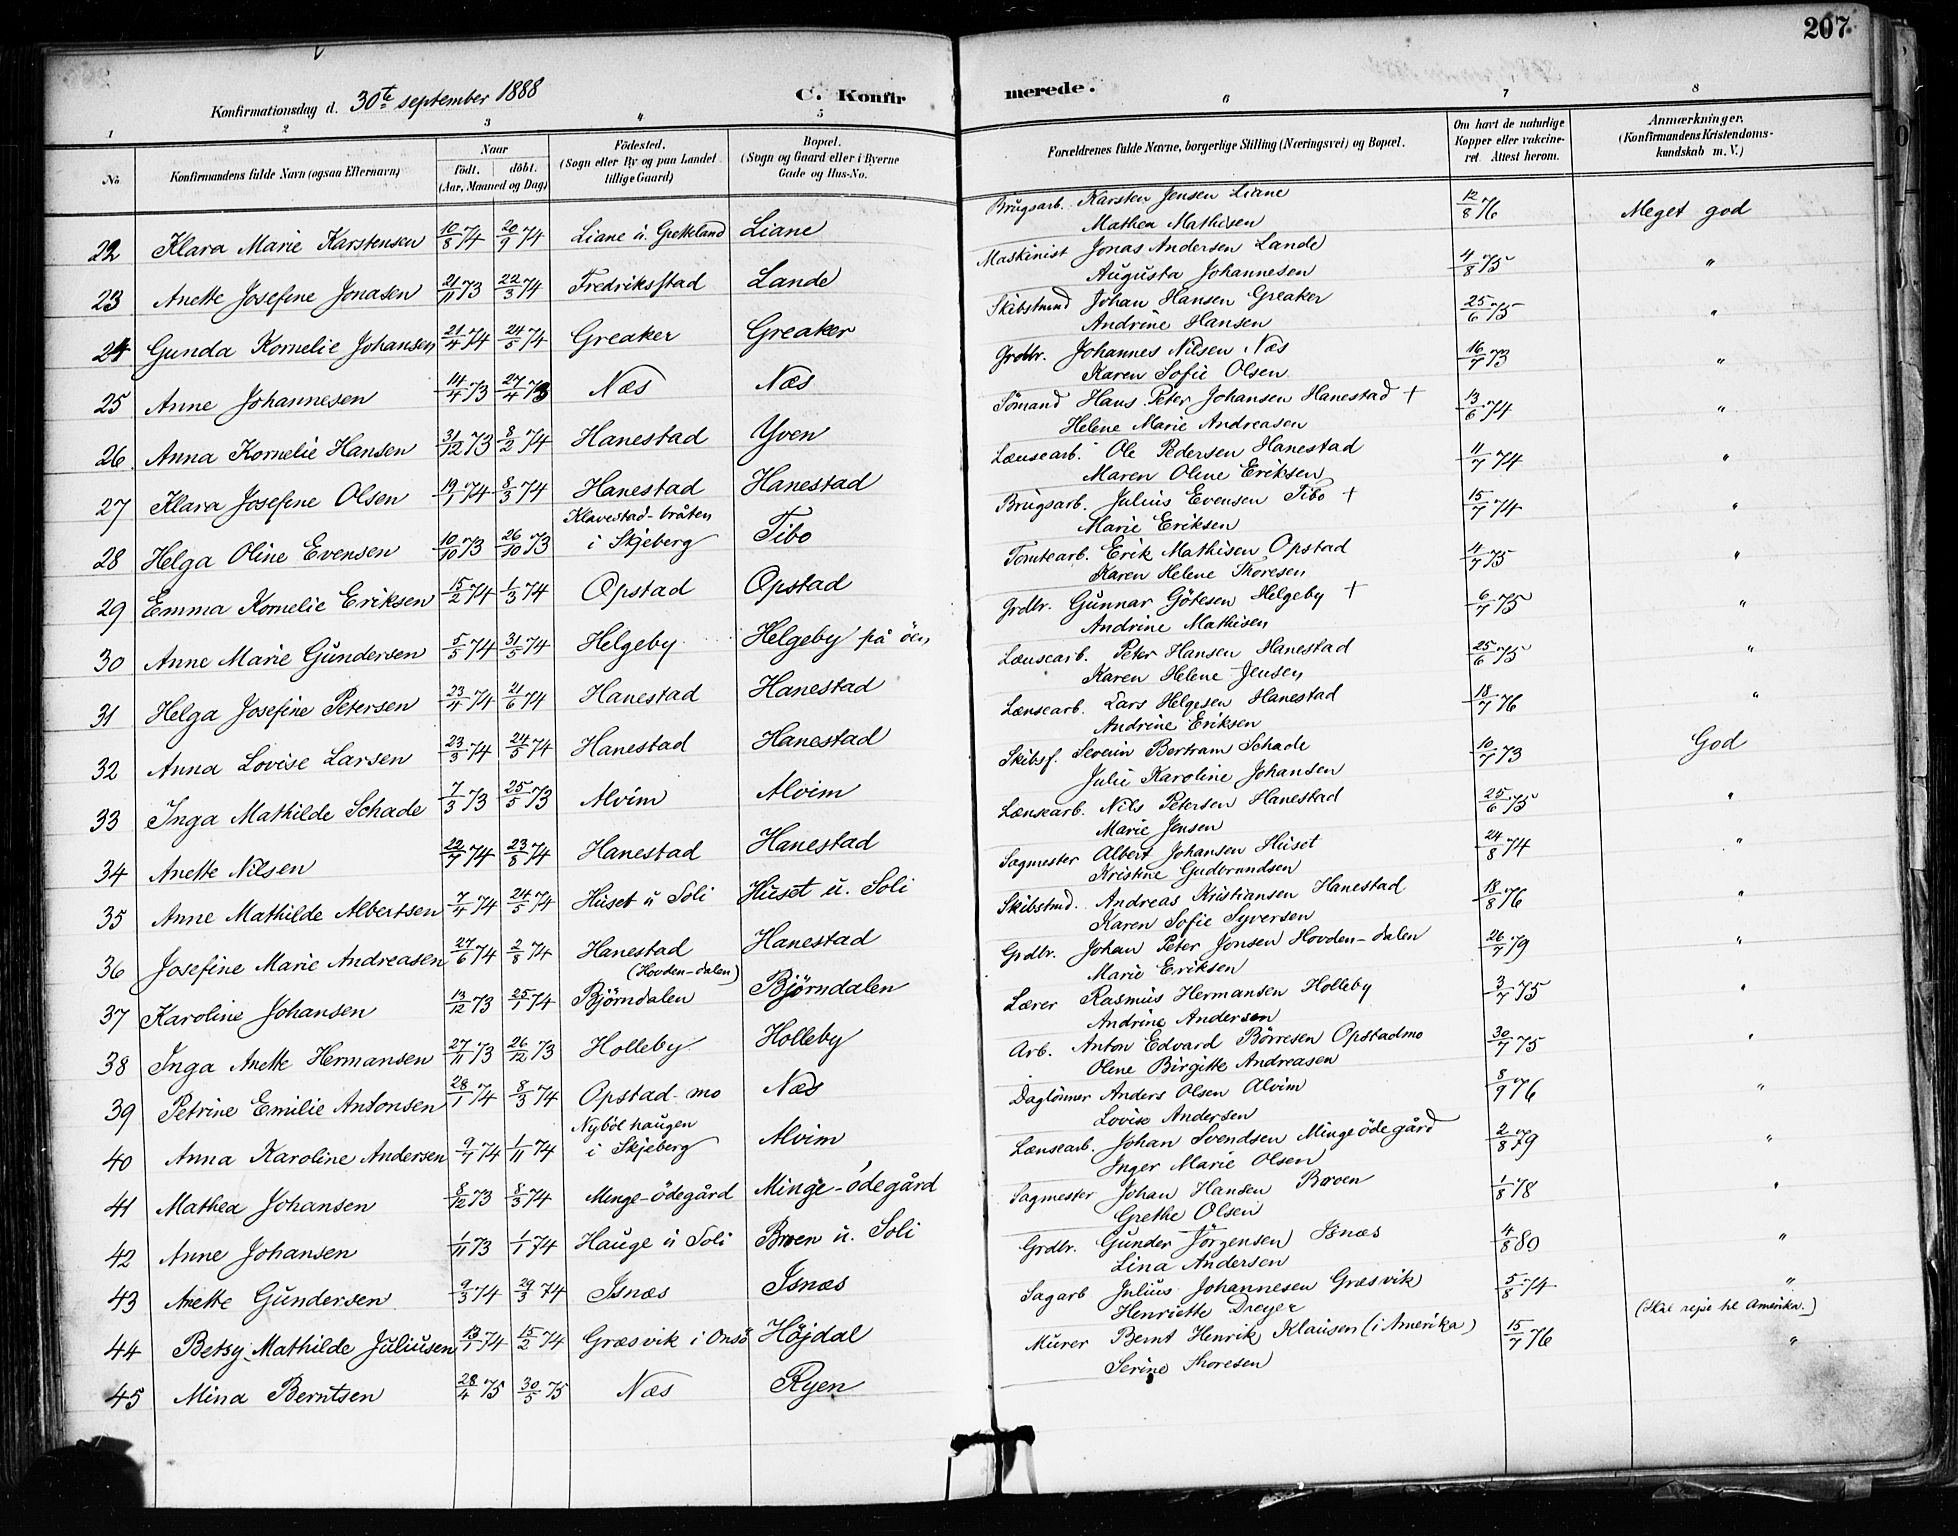 207.
Konfirmationsdag d. 30te september 1888
C. Konfirmerede.
1 2 3 4 5 6 7 8
No. Konfirmandens fulde Navn (ogsaa Efternavn) Naar födt. döbt. (Aar, Maaned og Dag) Födested. (Sogn eller By og paa Landet tillige Gaard) Bopæl. (Sogn og Gaard eller i Byerne Gade og Hus-No. Forældrenes fulde Navne, borgerlige Stilling (Næringsvei) og Bopæl. Om havt de naturlige Kopper eller vakcineret. Attest herom. Anmærkninger. (Konfirmandens Kristendomskundskab m. V.)
22 Klara Marie Karstensen 10/8 74 20/9 74 Liane u. Grotteland Liane Brugsarb. Karsten Jensen Liane 12/8 76 Meget god
Mathea Mathisen
23 Anette Josefine Jonasen 21/11 73 22/3 74 Fredriksstad Lande Maskinist Jonas Andersen Lande 4/8 75 "
Augusta Johannesen
24 Gunda Kornelie Johansen 21/4 74 24/5 74 Greaker Greaker Skibstmd Johan Hansen Greaker 25/6 75 "
Andrine Hansen
25 Anne Johannesen 14/4 73 27/4 73 Næs Næs Grdbr. Johannes Nilsen Næs 16/7 73 "
Karen Sofie Olsen
26. Anna Kornelie Hansen 31/12 73 8/2 74 Hanestad Yven Sömand Hans Peter Johansen Hanestad + 13/6 74 "
Helene Marie Andreasen
27 Klara Josefine Olsen 19/1 74 8/3 74 Hanestad Hanestad Lænsearb. Ole Pedersen Hanestad 11/7 74 "
Maren Oline Eriksen
28 Helga Oline Evensen 10/10 73 26/10 73 Klavestad-bråten i Skjeberg Tibo Brugsarb. Julius Evensen Tibo + 15/7 74 "
Marie Eriksen
29 Emma Kornelie Eriksen 15/2 74 1/3 74 Opstad Opstad Tomtearb. Erik Mathisen Opstad 4/7 75 "
Karen Helene Thoresen
30 Anne Marie Gundersen 5/5 74 31/5 74 Helgeby Helgeby på öen Grdbr. Gunnar Götesen Helgeby + 6/7 75 "
Andrine Mathisen
31 Helga Josefine Petersen 23/4 74 21/6 74 Hanestad Hanestad Lænsearb. Peter Hansen Hanestad 25/6 75 "
Karen Helene Jensen
32 Anna Lovise Larsen 23/3 74 24/5 74 Hanestad Hanestad Lænsearb. Lars Helgesen Hanestad 18/7 76 "
Andrine Eriksen
33 Inga Mathilde Schade 7/3 73 25/5 73 Alvim Alvim Skibsf. Severin Bertram Schade 10/7 73 God
Julie Karoline Johansen
34 Anette Nilsen 22/7 74 23/8 74 Hanestad Hanestad Lænsearb. Nils Petersen Hanestad 25/6 75 "
Marie Jensen
35 Anne Mathilde Albertsen 7/4 74 24/5 74 Huset u Soli Huset u. Soli Sagmester Albert Johansen Huset 24/8 74 "
Kristine Gudbrandsen
36 Josefine Marie Andreasen 27/6 74 2/8 74 Hanestad Hanestad Skibstmd. Andreas Kristiansen Hanestad 18/8 76 "
Karen Sofie Syversen
37 Karoline Johansen 13/12 73 25/1 74 (Hovden-dalen) Björndalen Björndalen Grdbr. Johan Peter Jonsen Hovden-dalen 26/7 79 "
Marie Eriksen
38 Inga Anette Hermansen 27/11 73 26/12 73 Holleby Holleby Lærer Rasmus Hermansen Holleby 3/7 75 "
Andrine Andersen
39 Petrine Emilie Antonsen 28/1 74 8/3 74 Opstad-mo Næs Arb. Anton Edvard Börresen Opstadmo 30/7 75 "
Oline Birgitte Andreasen
40 Anna Karoline Andersen 9/7 74 1/11 74 Nyböl haugen i Skjeberg Alvim Daglönner Anders Olsen Alvim 8/9 76 "
Lovise Andersen
41 Mathea Johansen 8/12 73 8/3 74 Minge-ödegård Minge-ödegård Lænsearb. Johan Svendsen Mingeödegård 2/8 79 "
Inger Marie Olsen
42 Anne Johansen 1/11 73 1/1 74 Hauge u Soli Broen u. Soli Sagmester Johan Hansen Broen 1/8 78 "
Grethe Olsen
43 Anette Gundersen 9/3 74 29/3 74 Isnæs Isnæs Grdbr. Gunder Jörgensen Isnæs 4/8 80 "
Lina Andersen
44 Betsy Mathilde Juliusen 13/1 74 15/2 74 Græsvik i Onsö Höjdal Sagarb Julius Johannesen Græsvik 5/8 74 "
Henriette Dreyer (Skal rejse til Amerika.)
45 Mina Berntsen 28/4 75 30/5 75 Næs Ryen Murer Bernt Henrik Klausen (i Amerika) 15/7 76 "
Serine Thoresen